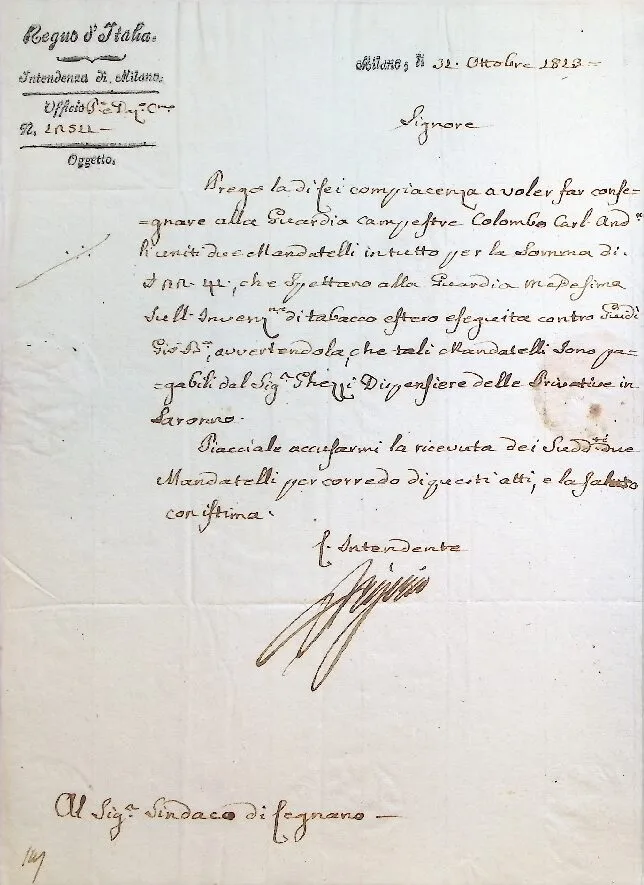 Regno d'Italia.
Intendenza di Milano.
Ufficio
N.
Oggetto.
Milano, li 31. Ottobre 1813 -
Signore
Prego la di lei compiacenza a voler far conse=
=gnare alla Guardia campestre Colombo Carl. And.ª
li uniti due Mandatelli in tutto per la Somma di
che Spettano alla Guardia medesima
Sull'Inven.ne di tabacco estero eseguita contro
Gio. B.ª, avvertendola, che tali Mandatelli Sono pa=
=gabili dal Sig.r Ghezzi Dispensiere delle Privative in
Saronno.
Piacciale accusarmi la ricevuta dei Sudd.ti due
Mandatelli per corredo di questi atti, e la saluto
con istima.
L'Intendente
Al Sig.r Sindaco di Legnano -